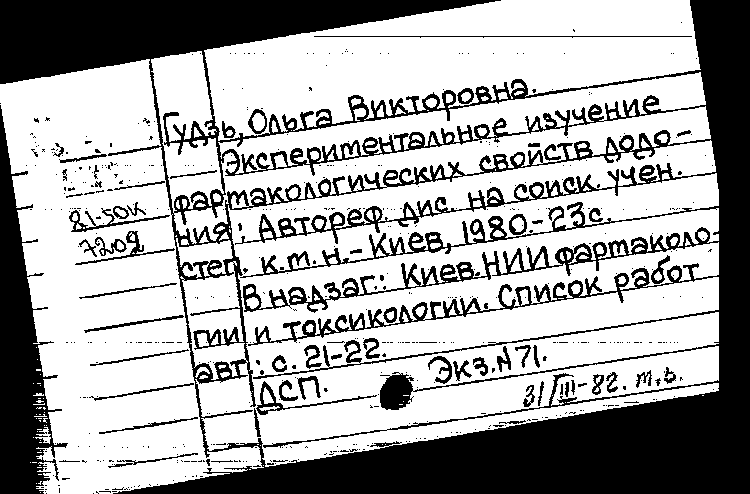 Гудзь, Ольга Викторовна.
Экспериментальное изучение
фармакологических свойств додо-
ния: Автореф. дис. на соиск. учен.
степ. к.м.н.-Киев, 1980.-23с.
В надзаг.: Киев.НИИ фармаколо-
гии и токсикологии. Список работ
авт.: с. 21-22.
ДСП. Экз.N71.
81-50к
7202
31/III-82. т.з.